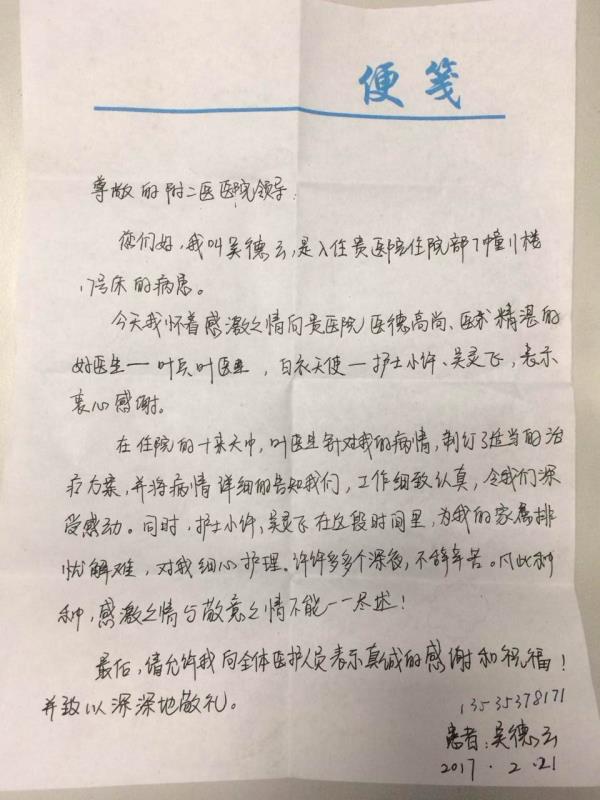 便笺
尊敬的附二医医院领导:
您们好,我叫吴德云,是入住贵医院住院部7幢11楼
17号床的病患。
今天我怀着感激之情向贵医院医德高尚、医术精湛的
好医生—叶兵叶医生,白衣天使—护士小许、吴灵飞,表示
衷心感谢。
在住院的十来天中,叶医生针对我的病情,制订了适当的治
疗方案,并将病情详细的告知我们,工作细致认真,令我们深
受感动。同时,护士小许、吴灵飞在这段时间里,为我的家属排
忧解难,对我细心护理。许许多多个深夜,不辞辛苦。凡此种
种,感激之情与敬意之情不能一一尽述!
最后,请允许我向全体医护人员表示真诚的感谢和祝福!
并致以深深地敬礼。
13535378171
患者:吴德云
2017.2.21